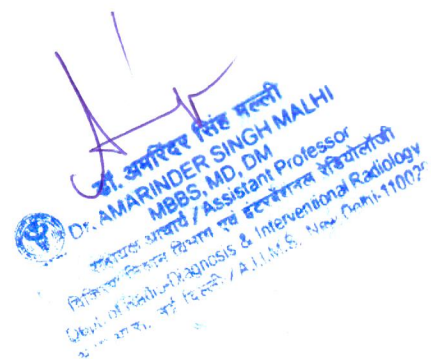 डॉ. अमरिंदर सिंह मल्ली
Dr. AMARINDER SINGH MALHI
MBBS, MD, DM
सहायक आचार्य / Assistant Professor
विकिरण निदान विभाग एवं इंटरवेंशनल रेडियोलॉजी
Deptt. of Radio-Diagnosis & Interventional Radiology
नई दिल्ली / A.I.I.M.S. New Delhi-110029